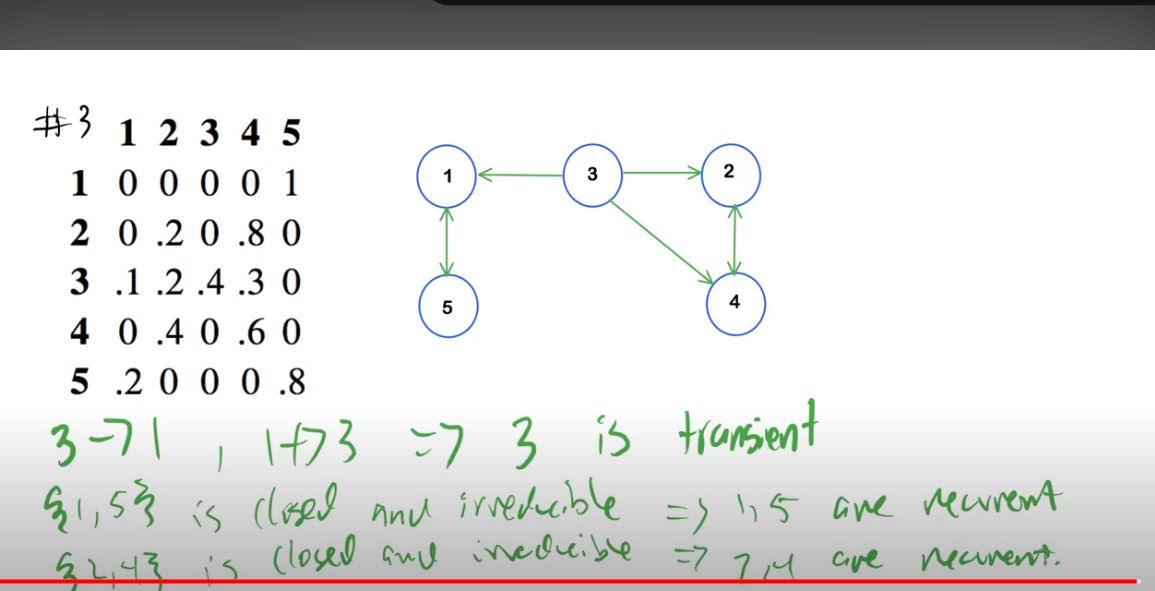 #3 1 2 3 4 5
1 0 0 0 0 1
2 0 .2 0 .8 0
3 .1 .2 .4 .3 0
4 0 .4 0 .6 0
5 .2 0 0 0 .8
1 3 2
5 4
3 → 1 , 1 ↛ 3 => 3 is transient
{1,5} is closed and irreducible => 1,5 are recurrent
{2,4} is closed and irreducible => 2,4 are recurrent.